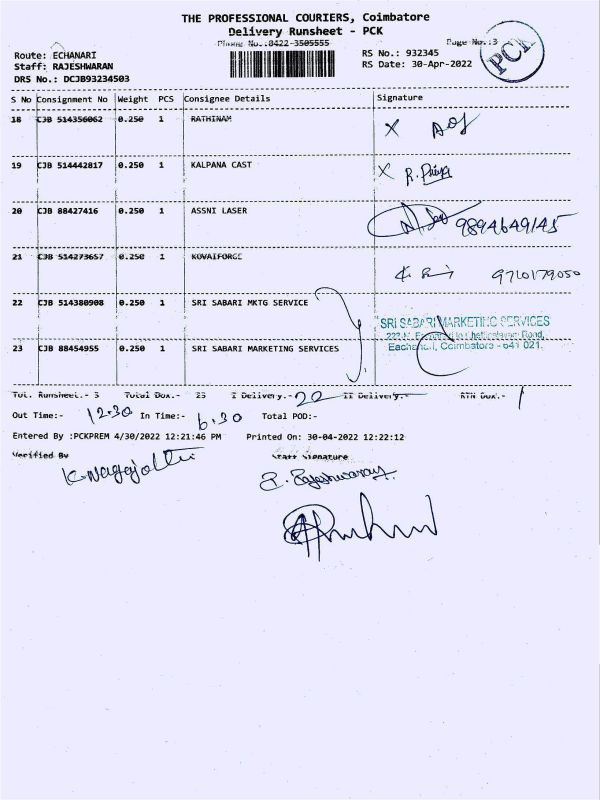 THE PROFESSIONAL COURIERS, Coimbatore
Delivery Runsheet - PCK
Phone No.:0422-3505555
Page No.:3
PCK
Route: ECHANARI
RS No.: 932345
Staff: RAJESHWARAN
RS Date: 30-Apr-2022
DRS No.: DCJB93234503
S No Consignment No Weight PCS Consignee Details Signature
18 CJB 514356062 0.250 1 RATHINAM X
19 CJB 514442817 0.250 1 KALPANA CAST X R. Priya
20 CJB 88427416 0.250 1 ASSNI LASER 9894649145
21 CJB 514273657 0.250 1 KOVAIFORCE 9710179050
22 CJB 514380908 0.250 1 SRI SABARI MKTG SERVICE
SRI SABARI MARKETING SERVICES
Road,
Eachanari, Coimbatore - 641 021.
23 CJB 88454955 0.250 1 SRI SABARI MARKETING SERVICES
Tot. Runsheet.- 3 Total Dox.- 23 I Delivery.- 22 II Delivery.- RTN Dox.- 1
Out Time:- 12.30 In Time:- 6.30 Total POD:-
Entered By :PCKPREM 4/30/2022 12:21:46 PM Printed On: 30-04-2022 12:22:12
Verified By Staff Signature
K. Nagajothi
R. Rajeshwaran.